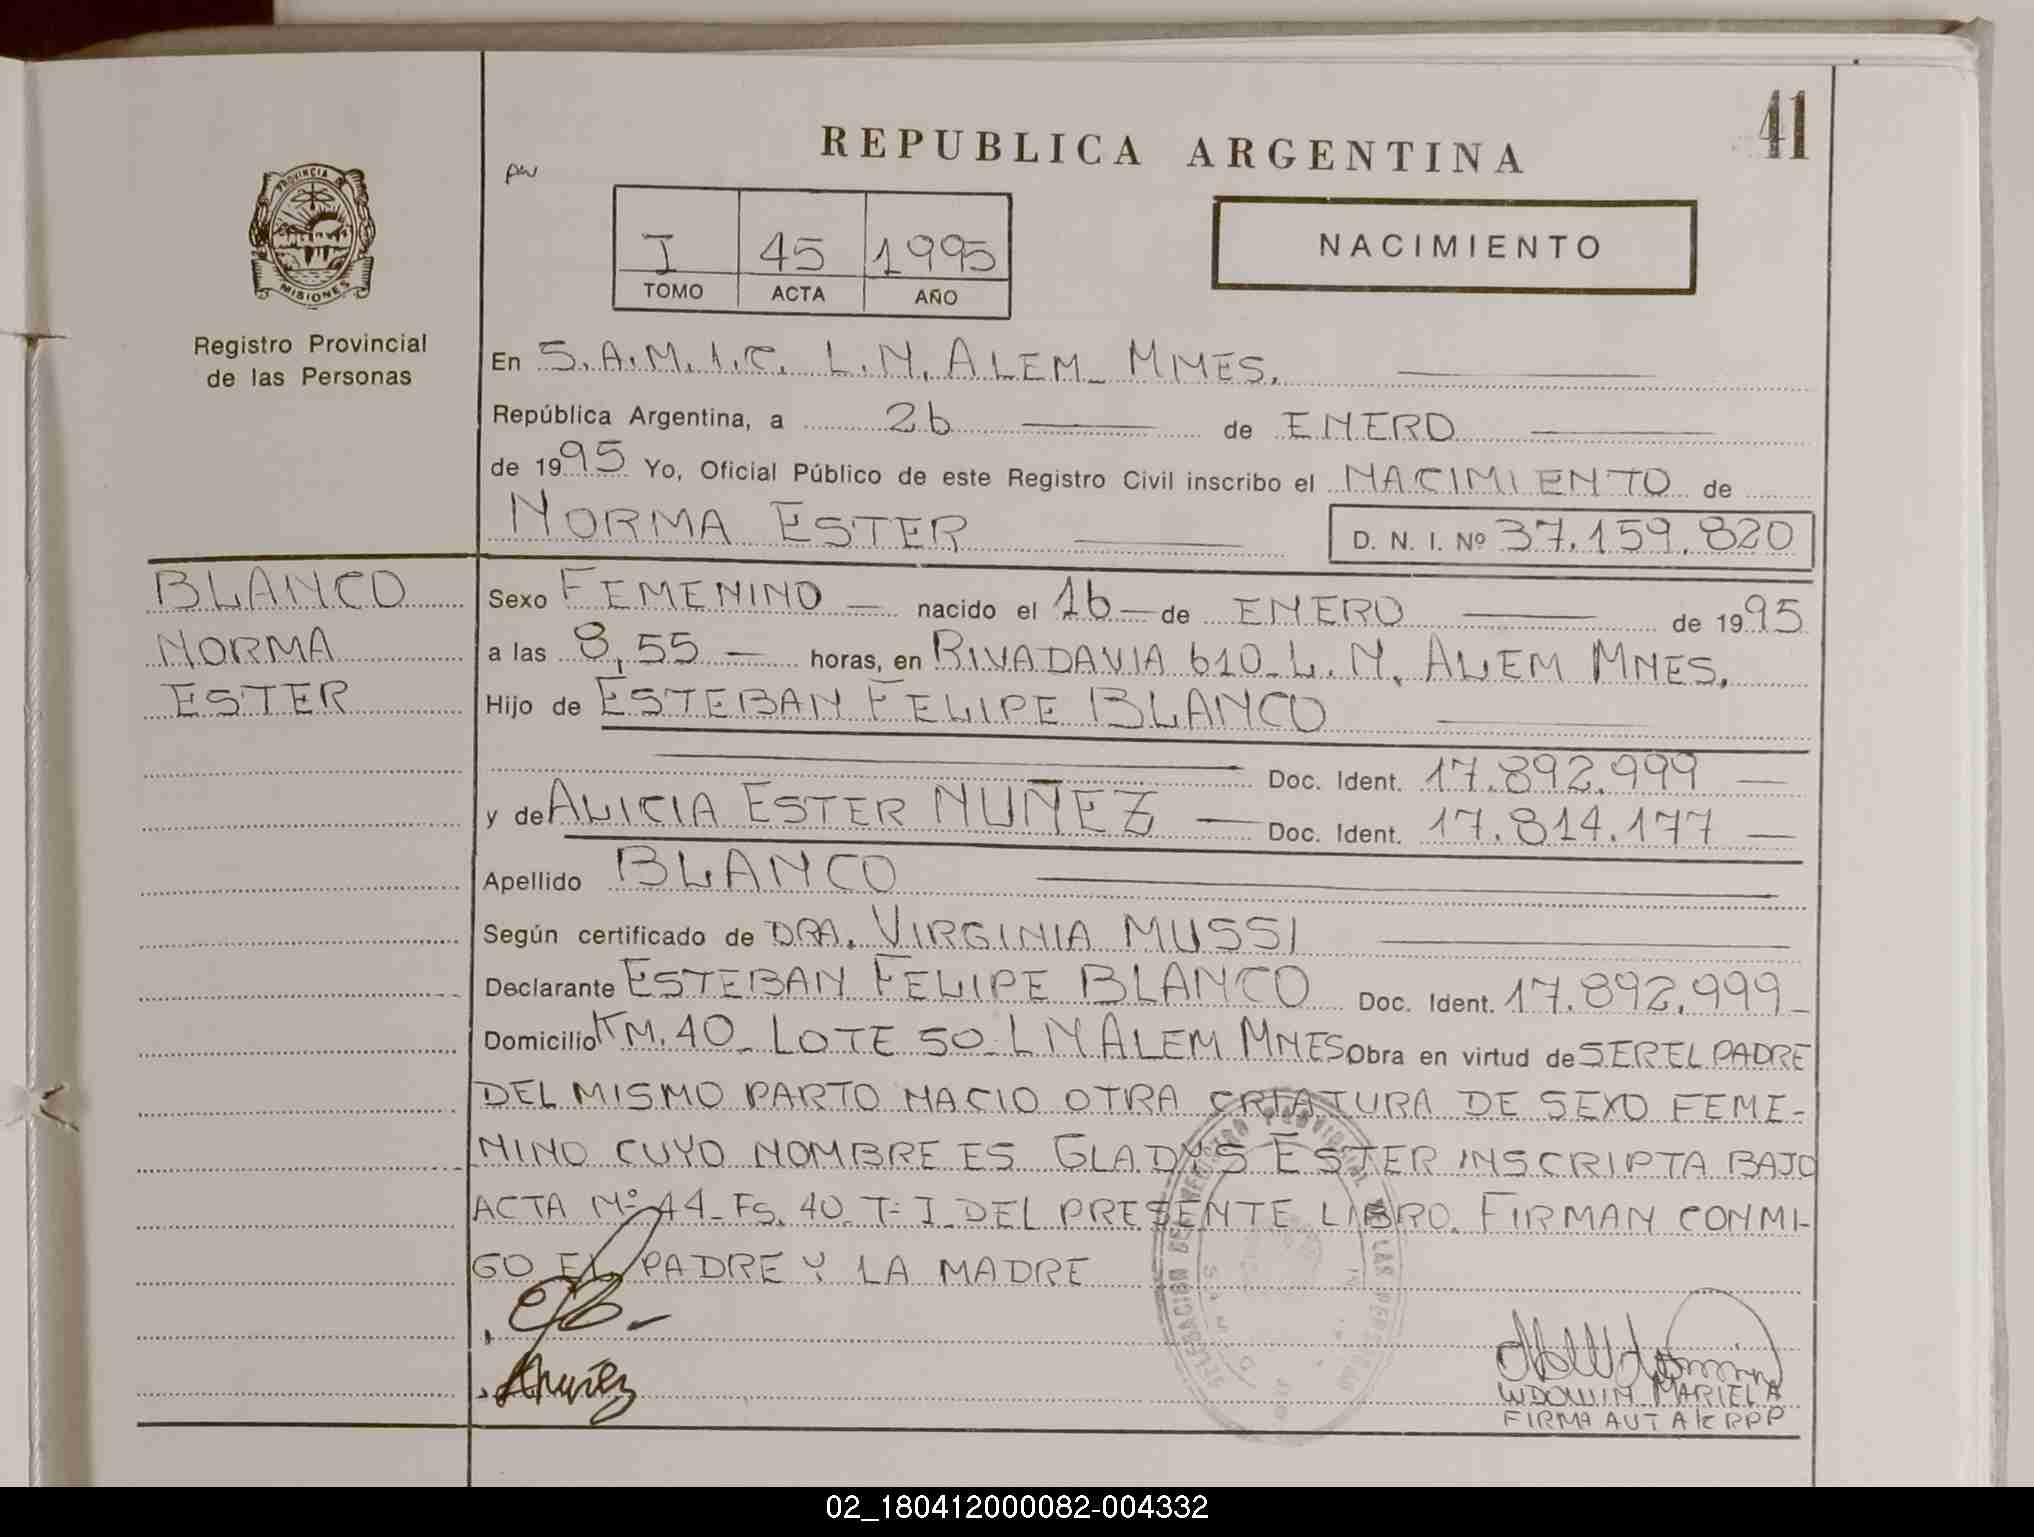 41
REPUBLICA ARGENTINA
PROVINCIA DE
MISIONES
Registro Provincial
de las Personas
I 45 1995
TOMO ACTA AÑO
NACIMIENTO
En S.A.M.I.C. L.N. ALEM_ MNES.
República Argentina, a 26 de ENERO
de 1995 Yo, Oficial Público de este Registro Civil inscribo el NACIMIENTO de
NORMA ESTER D. N. I. Nº 37.159.820
BLANCO
NORMA
ESTER
Sexo FEMENINO nacido el 16 de ENERO de 1995
a las 8,55 horas, en RIVADAVIA 610_L.N. ALEM MNES.
Hijo de ESTEBAN FELIPE BLANCO
Doc. Ident. 17.892.999
y de ALICIA ESTER NUÑEZ Doc. Ident. 17.814.177
Apellido BLANCO
Según certificado de DRA. VIRGINIA MUSSI
Declarante ESTEBAN FELIPE BLANCO Doc. Ident. 17.892.999
Domicilio KM. 40_ LOTE 50_LN ALEM MNES Obra en virtud de SER EL PADRE
DEL MISMO PARTO NACIO OTRA CRIATURA DE SEXO FEME-
NINO CUYO NOMBRE ES GLADYS ESTER INSCRIPTA BAJO
ACTA Nº 44_ Fs. 40_T= I_DEL PRESENTE LIBRO. FIRMAN CONMI-
GO EL PADRE Y LA MADRE
WDOWIN MARIELA
FIRMA AUT A/C RPP
02_180412000082-004332